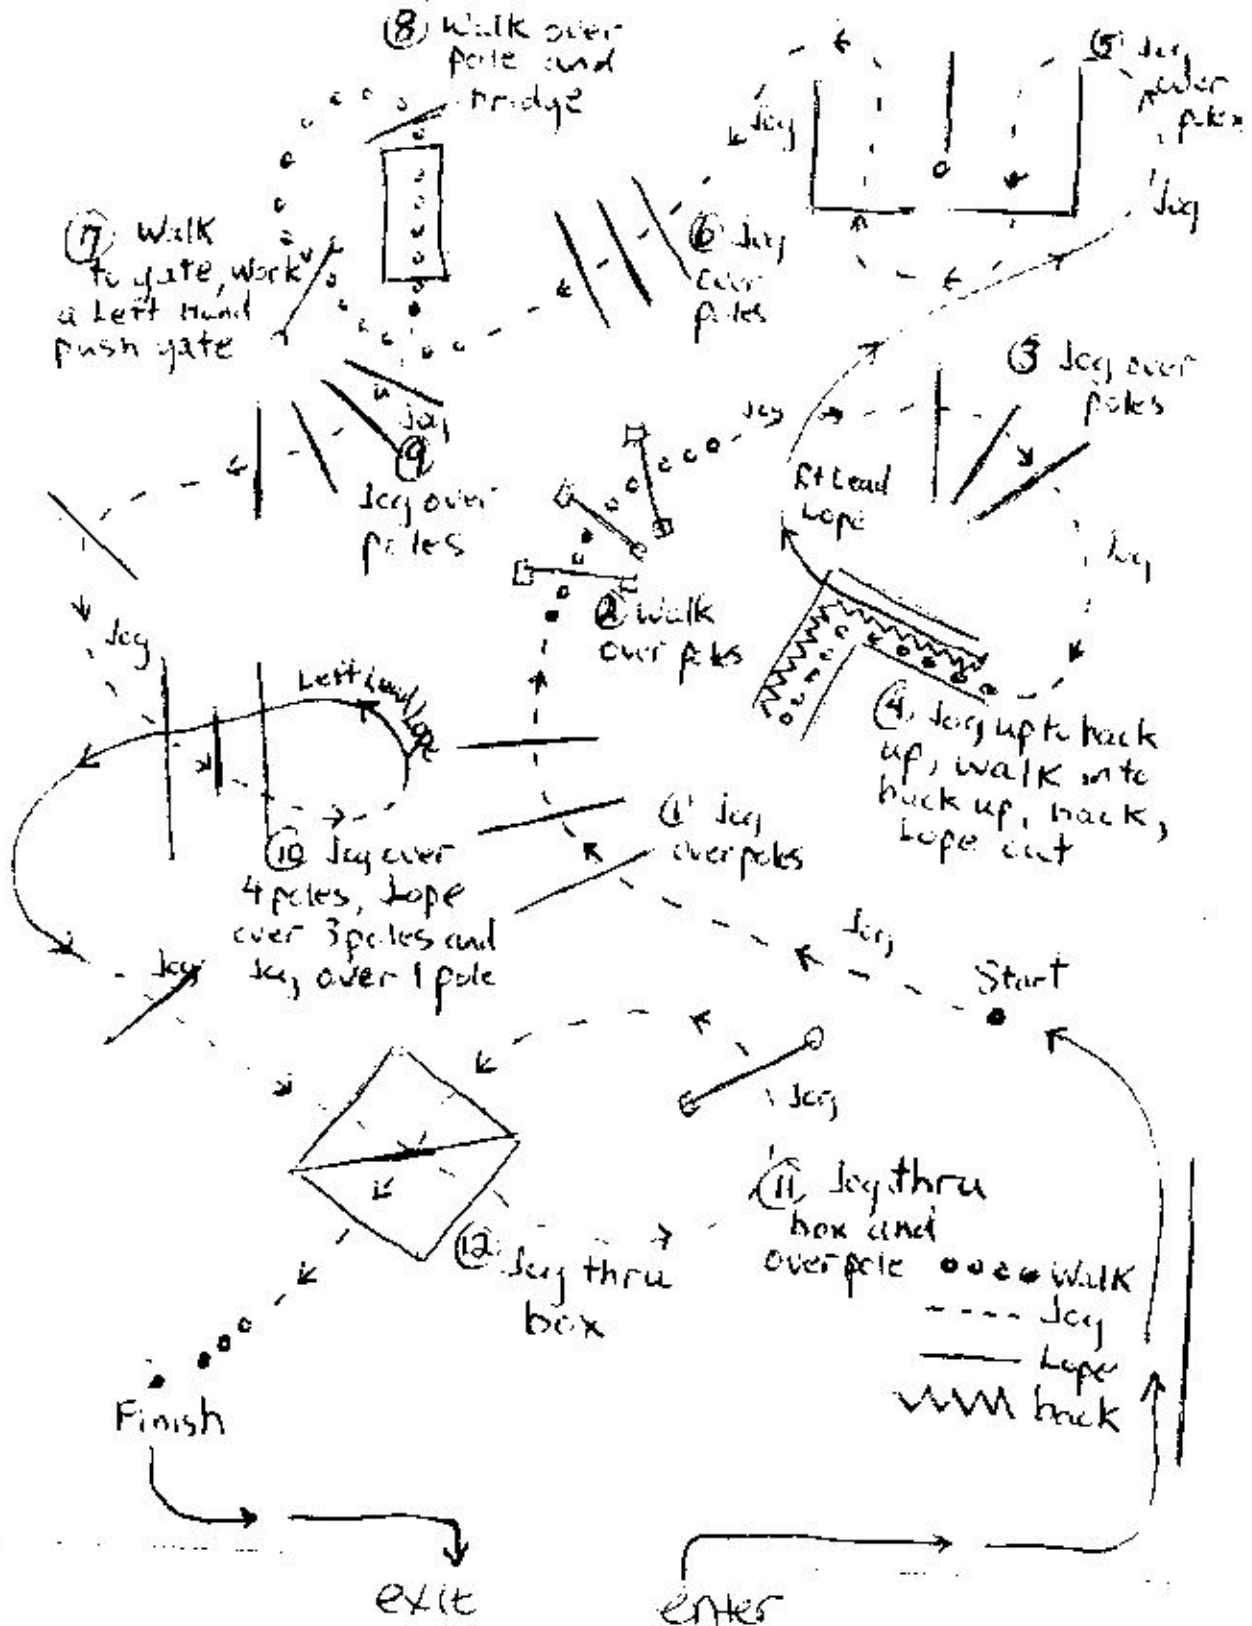 ⑧ Walk over
pole and
bridge
⑤ Jog
over
poles
Jog
Jog
⑦ Walk
to gate, work
a Left Hand
push gate
⑥ Jog
over
poles
③ Jog over
poles
Jog
Jog
⑨
Jog over
poles
Jog
Rt Lead
Lope
Jog
② Walk
over poles
Jog
Left Lead Lope
④ Jog up to back
up, walk into
back up, back,
Lope out
① Jog
over poles
⑩ Jog over
4 poles, Lope
over 3 poles and
Jog over 1 pole
Jog
Jog
Start
Jog
⑪ Jog thru
box and
over pole
⑫ Jog thru
box
Walk
Jog
Lope
back
Finish
exit
enter